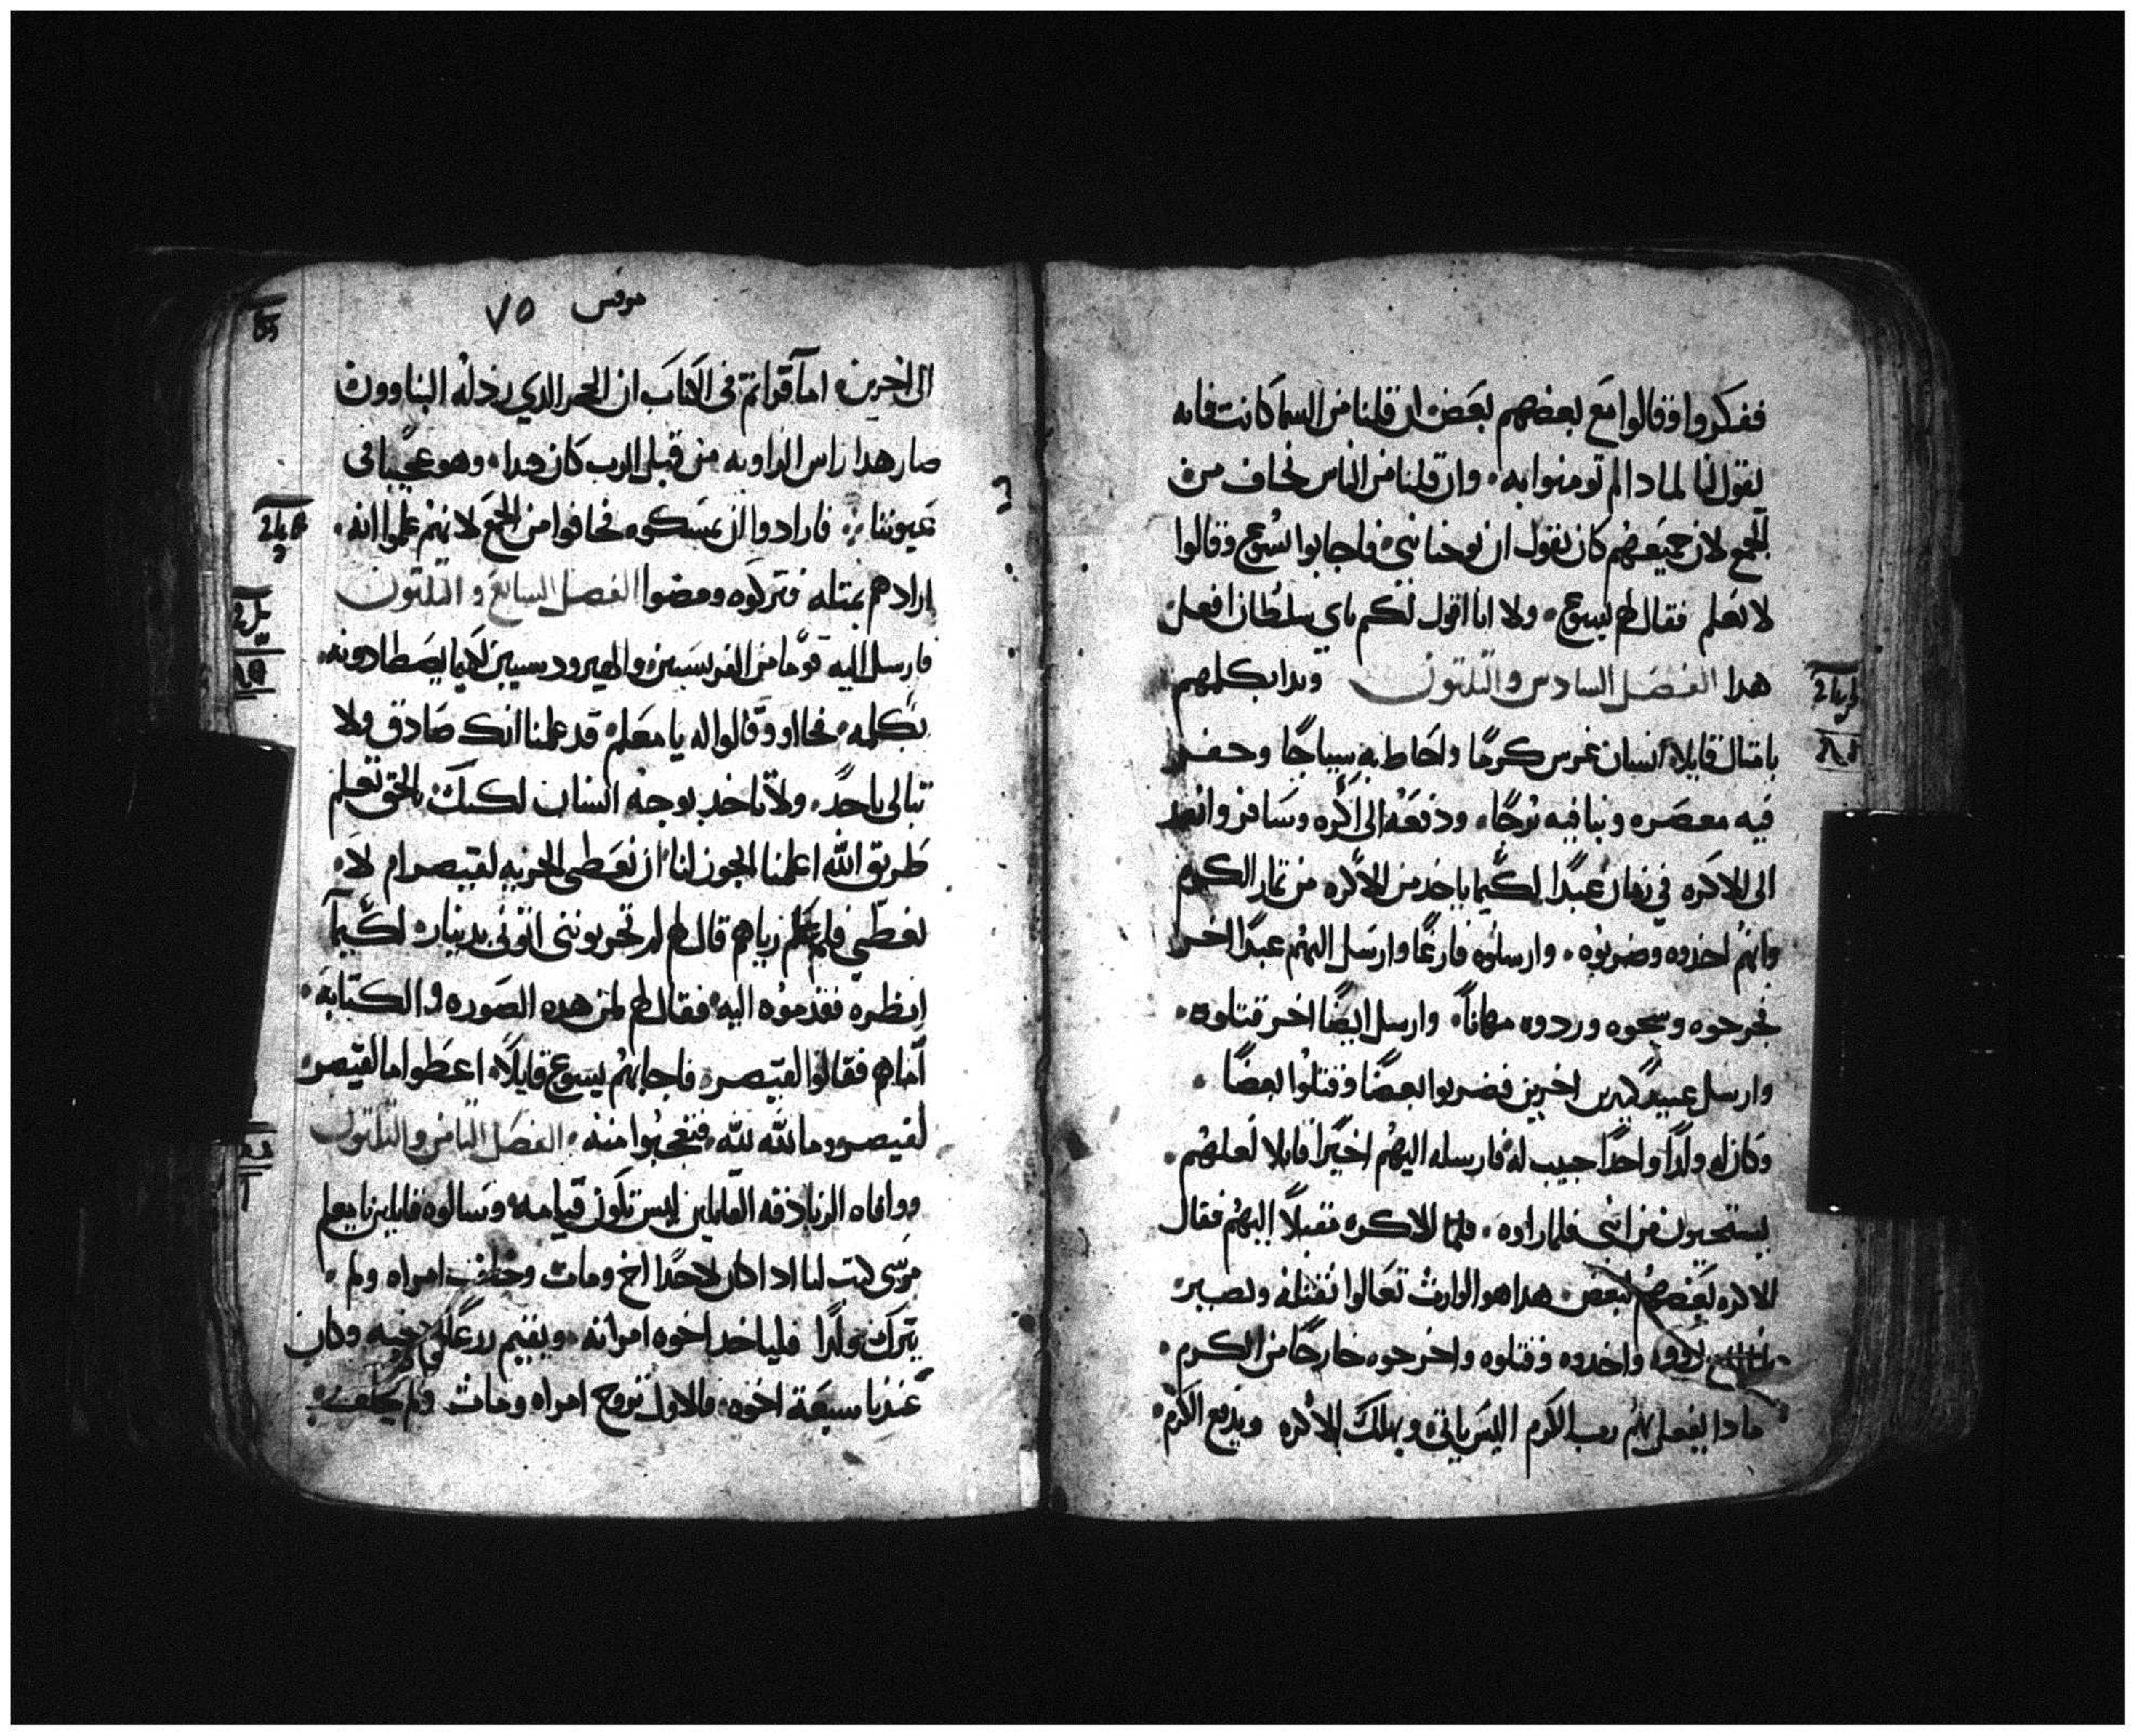 ففكروا وقالوا مع بعضهم بعض ان قلنا من السما كانت فانه
يقول لنا لمادا لم تومنوا به وان قلنا من الناس نخاف من
الجمع لان جميعهم كان يقول ان يوحنا نبي فاجابوا يسوع وقالوا
لا نعلم فقال لهم يسوع ولا انا اقول لكم باي سلطان افعل
هدا الفصل السادس والتلتون وبدا يكلمهم
بامتال قايلا انسان غرس كرمًا واحاط به سياجًا وحفر
فيه معصره وبنا فيه برجًا ودفعه الى اكره وسافر وانفد
الى الاكره في زمان عبدًا لكيما ياخد من الاكره من تمار الكرم
وانهم اخدوه وضربوه وارسلوه فارغًا وارسل اليهم عبدًا اخر
فجرحوه وشجوه وردوه مهانًا وارسل ايضًا اخر قتلوه
وارسل عبيد كثيرين اخرين فضربوا بعضًا وقتلوا بعضًا
وكان له ولدًا واحدًا حبيب له فارسله اليهم اخيرًا قايلا لعلهم
يستحيون من ابني فلما راوه الاكره مقبلًا اليهم فقال
الاكره بعضهم لبعض هدا هو الوارث تعالوا نقتله ويصير
واخدوه وقتلوه واخرجوه خارجًا من الكرم
مادا يفعل بهم رب الكرم اليس ياتي ويهلك الاكره ويدفع الكرم
مرقس ٧٥
الى اخرين اما قراتم في الكتاب ان الحجر الدي ردله البناوون
صار هدا راس الزاويه من قبل الرب كان هدا وهو عجيبا في
عيوننا فارادوا ان يمسكوه فخافوا من الجمع لانهم علموا انه
ارادهم بمتله فتركوه ومضوا الفصل السابع والتلتون
فارسل اليه قومًا من الفريسيين والهيرودسيين لكيما يصطادونه
بكلمه فجااو وقالوا له يا معلم قد علمنا انك صادق ولا
تبالي باحدً ولا تاخد بوجه انسان لكنك بالحق تعلم
طريق الله اعلمنا ايجوز لنا ان نعطي الجزيه لقيصر ام لا
نعطي فلما علم رياهم قال لهم لم تجربونني اتوني بدينار لكيما
انظره فقدموه اليه فقال لهم لمن هده الصوره والكتابه
اماهم فقالوا لقيصر فاجابهم يسوع قايلًا اعطوا ما لقيصر
لقيصر وما لله لله فتعجبوا منه الفصل التامن والتلتون
ووافاه الزنادقه القايلين ليس تكون قيامه وسالوه قايلين يا معلم
موسى كتب لنا ادا كان لاحدًا اخ ومات وخلف امراه ولم
يترك ولدًا فلياخد اخوه امراته ويقيم زرعًا لاخيه وكان
عندنا سبعة اخوه فالاول تزوج امراه ومات ولم يخلف